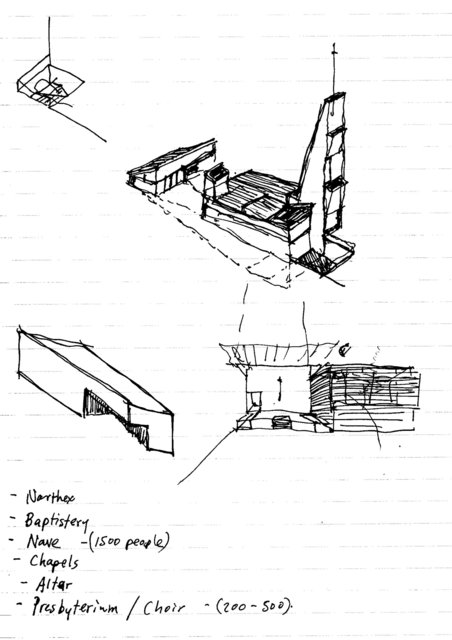 - Narthex
- Baptistery
- Nave - (1500 people)
- Chapels
- Altar
- Presbyterium / Choir - (200-500).